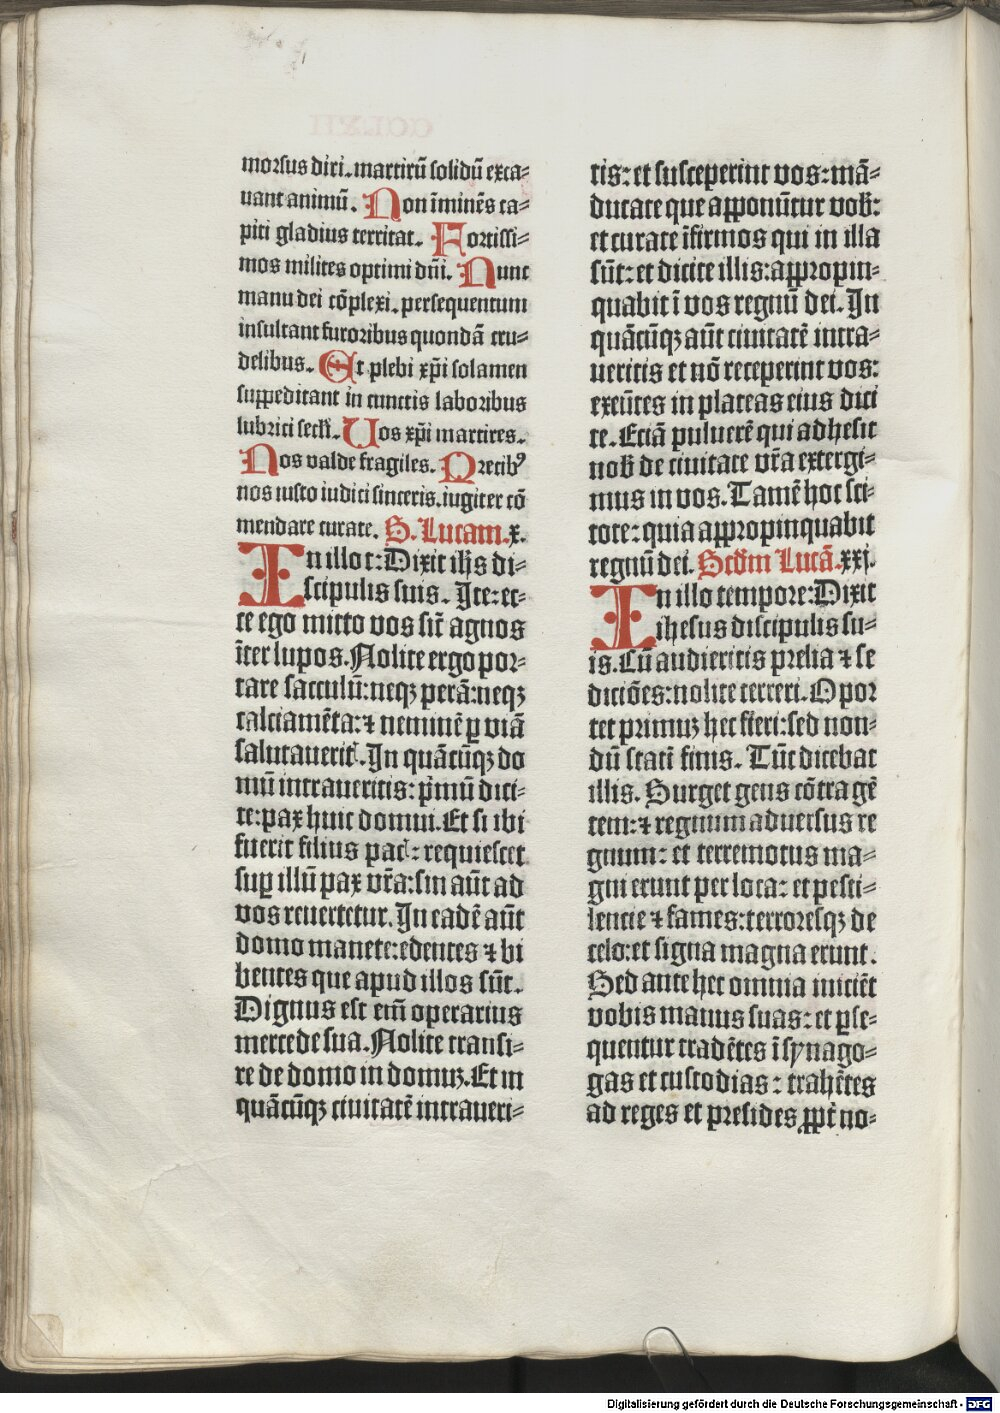 morsus diri. martirũ solidũ exca⸗
uant animũ. Non ĩminẽs ca⸗
piti gladius territat. Fortissi⸗
mos milites optimi dñi. Nunc
manu dei cõplexi. persequentum
insultant furoribus quondã cru⸗
delibus. Et plebi xp̃i solamen
suppeditant in cunctis laboribus
lubrici secl̃i. Uos xp̃i martires.
Nos valde fragiles. Precibꝰ
nos iusto iudici sinceris. iugiter cõ
mendare curate. S. Lucam. x.
In illo t: Dixit ihs di⸗
scipulis suis. Ite: ec⸗
ce ego mitto vos sic̃ agnos
ĩter lupos. Nolite ergo por⸗
tare sacculũ: neqꝫ perã: neqꝫ
calciamẽta: ⁊ neminẽ ꝑ viã
salutauerit̃. In quãcũqꝫ do
mũ intraueritis: p̃mũ dici⸗
te: pax huic domui. Et si ibi
fuerit filius pac̃: requiescet
suꝑ illũ pax vr̃a: sin aũt ad
vos reuertetur. In eadẽ aũt
domo manete: edentes ⁊ bi
bentes que apud illos sũt.
Dignus est em̃ operarius
mercede sua. Nolite transi⸗
re de domo in domuꝫ. Et in
quãcũqꝫ ciuitatẽ intraueri⸗
tis: et susceperint vos: mã⸗
ducate que apponũtur vob̃:
et curate ĩfirmos qui in illa
sũt: et dicite illis: appropin⸗
quabit ĩ vos regnũ dei. In
quãcũqꝫ aũt ciuitatẽ intra⸗
ueritis et nõ receperint vos:
exeũtes in plateas eius dici
te. Eciã puluerẽ qui adhesit
nob̃ de ciuitate vr̃a extergi⸗
mus in vos. Tamẽ hoc sci⸗
tote: quia appropinquabit
regnũ dei. Scd̃m Lucã. xxj.
In illo tempore: Dixit
ihesus discipulis su⸗
is. Cũ audieritis prelia ⁊ se
diciões: nolite terreri. Opor
tet primuꝫ hec fieri: sed non⸗
dũ stati finis. Tũc dicebat
illis. Surget gens cõtra gẽ
tem: ⁊ regnum aduersus re
gnum: et terremotus ma⸗
gni erunt per loca: et pesti⸗
lentie ⁊ fames: terroresqꝫ de
celo: et signa magna erunt.
Sed ante hec omnia iniciẽt
vobis manus suas: et ꝑse⸗
quentur tradẽtes ĩ synago⸗
gas et custodias: trahẽtes
ad reges et presides ꝓpt̃ no⸗
Digitalisierung gefördert durch die Deutsche Forschungsgemeinschaft - DFG